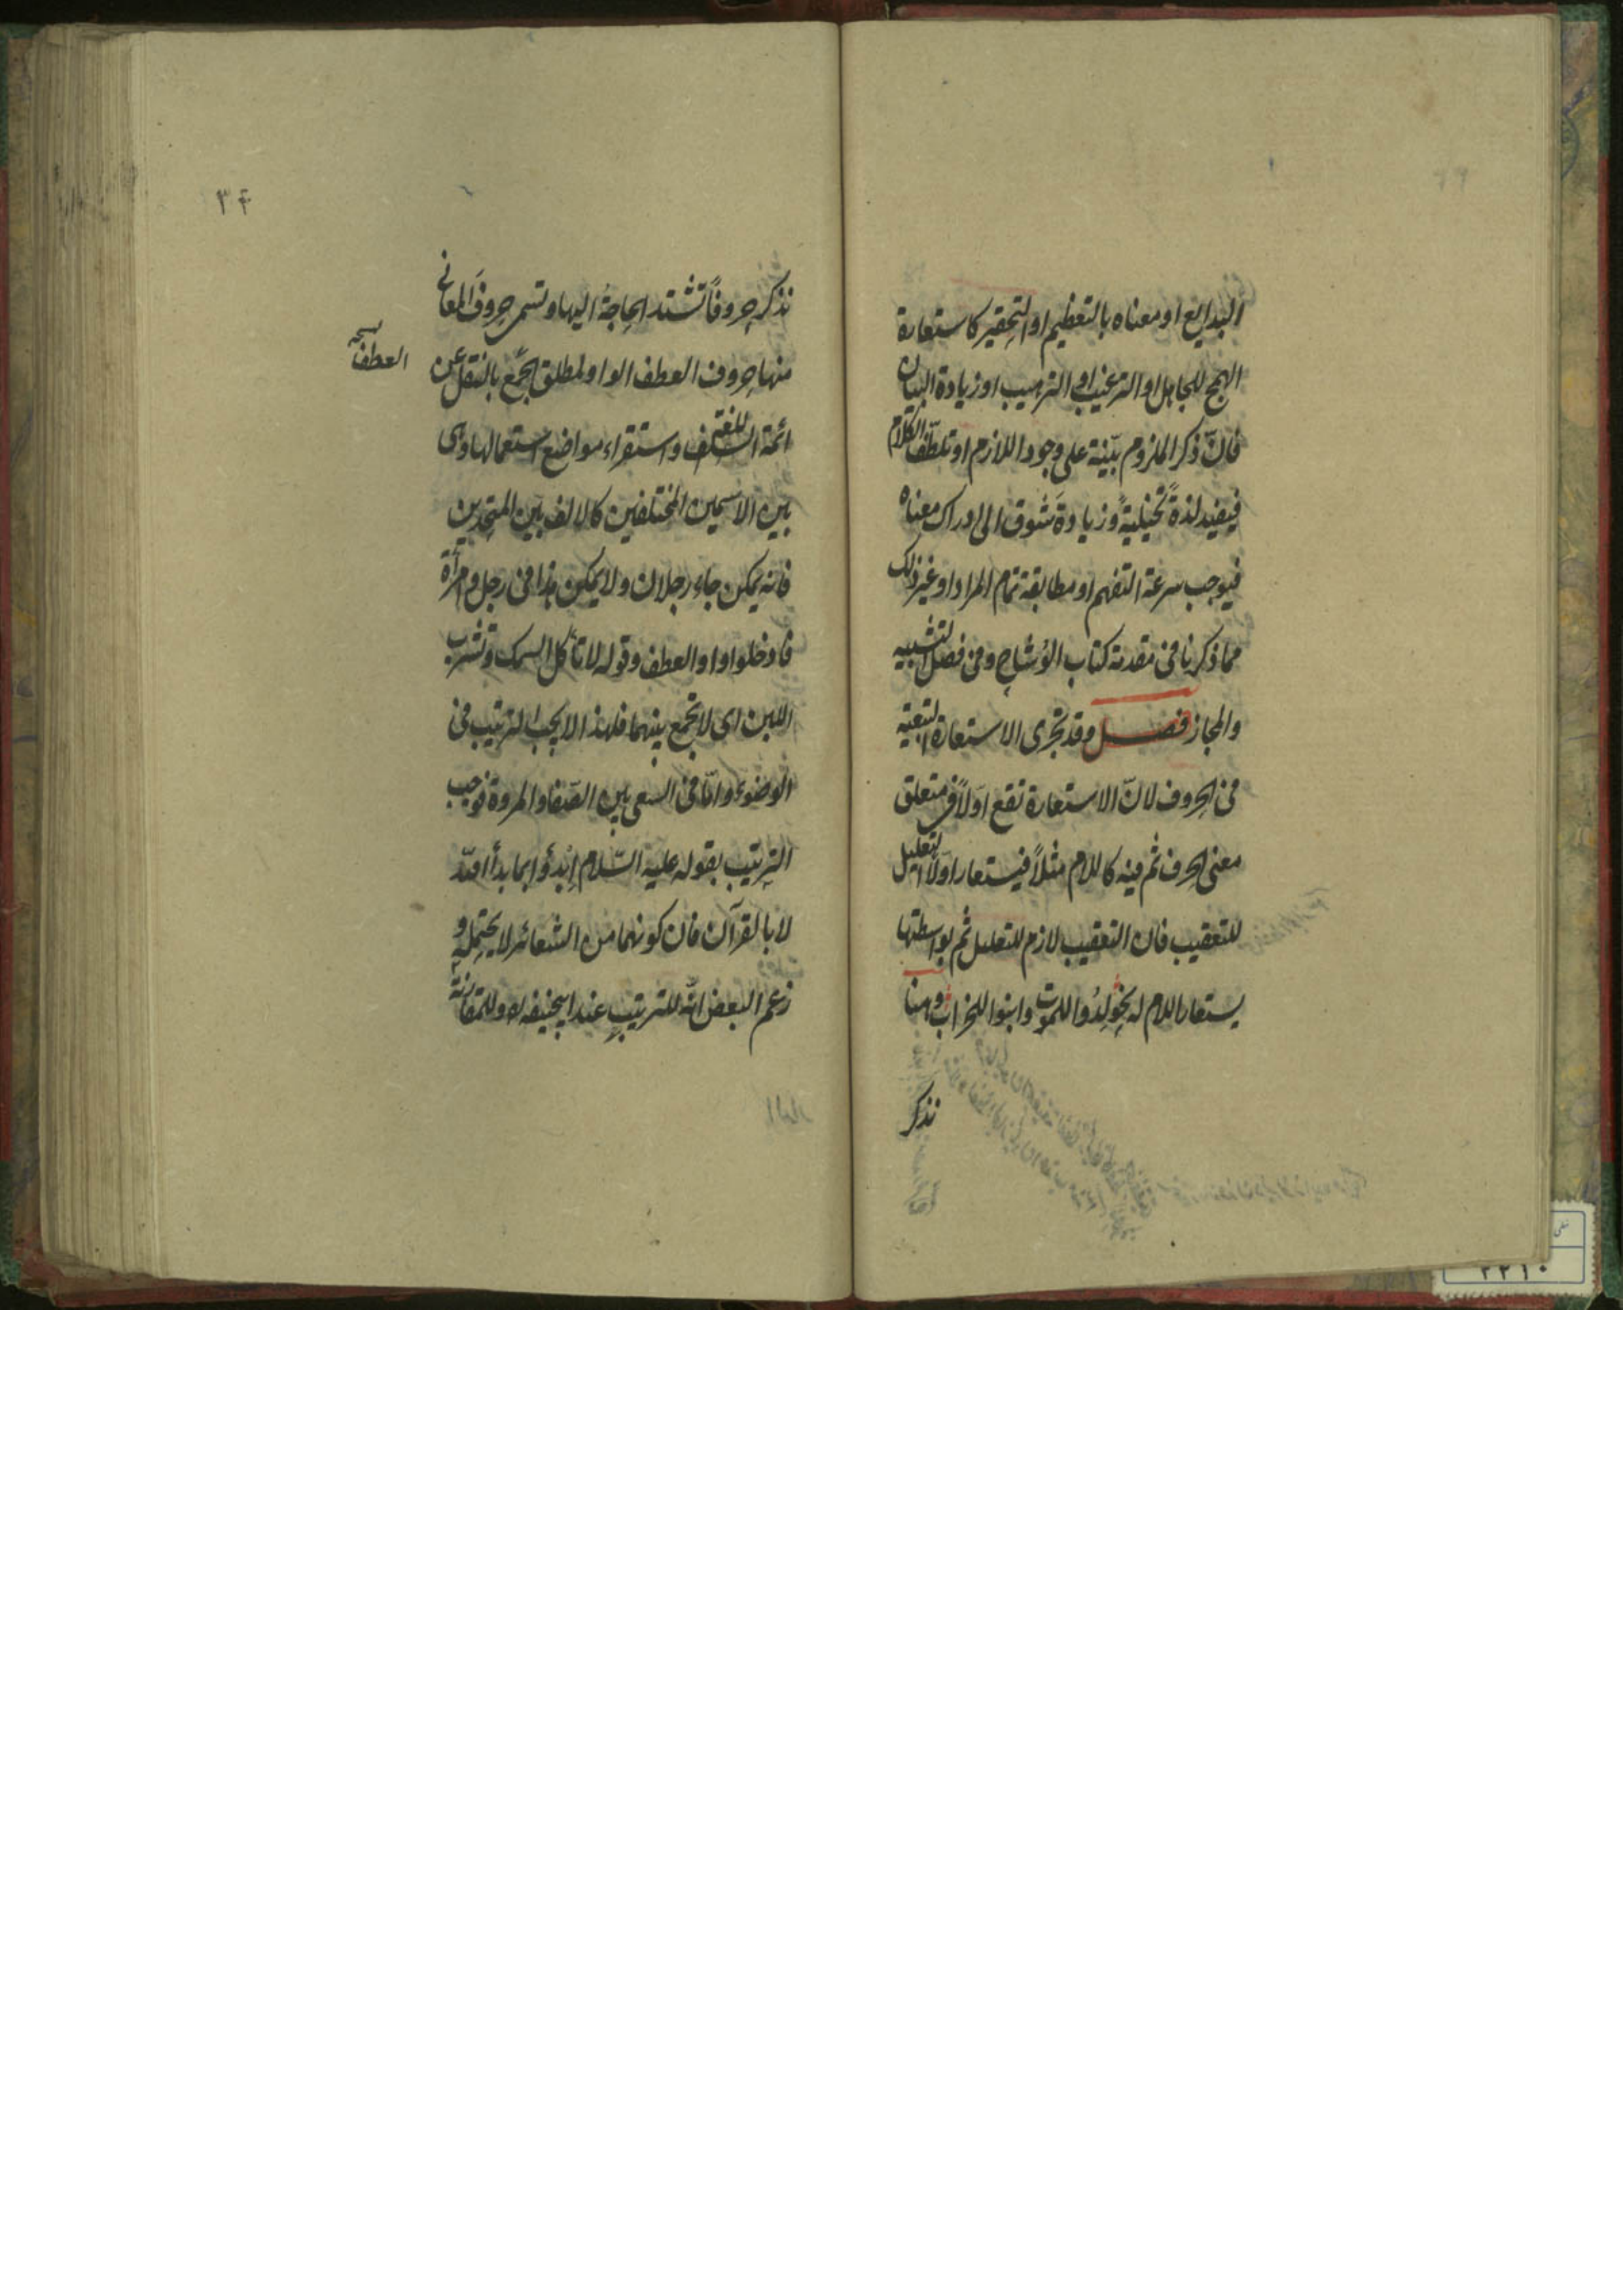 البدايع او معناه بالتعظيم او التحقير كاستعارة
الهمج للجاهل او الترغيب او الترهيب او زيادة البيان
فانّ ذكر الملزوم بيّنة على وجود اللازم او تلطّف الكلام
فيفيد لذةً تخيليةً وزيادةَ شوق الى ادراك معناه
فيوجب سرعة التفهم او مطابقة تمام المراد او غير ذلك
مما ذكرنا فى مقدمة كتاب الوُشاح وفى فصل التشبيه
والمجاز فصل وقد تجرى الاستعارة التبعية
فى الحروف لانّ الاستعارة تقع اولاً فى متعلق
معنى الحرف ثم فيه كاللام مثلاً فيستعار اولاً التعليل
للتعقيب فان التعقيب لازم للتعليل ثم بواسطتها
يستعار اللام له نحو لِدُوا للموت وابنوا للخراب وهنا
نذكر
٣۴
نذكر حروفاً تشتد الحاجة اليها وتسمى حروفَ المعانى
منها حروف العطف الواو لمطلق الجمع بالنقل عن
العطف
ائمة اللغة واستقراء مواضع استعمالها وهى
بين الاسمين المختلفين كالالف بين المتحدين
فانه يمكن جاء رجلان ولا يمكن هذا فى رجل وامرأة
فادخلوا واو العطف وقوله لا تأكل السمك وتشرب
اللبن اى لا تجمع بينهما فلهذا لا يجب الترتيب فى
الوضوء وامّا فى السعى بين الصّفا والمروة فوجب
الترتيب بقوله عليه السّلام اِبْدؤا بما بدأ اللّه
لا بالقرآن فان كونهما من الشعائر لا يحتمله و
زعم البعض انّه للترتيب عند ابيحنيفه له وللمقارنة
٢٢١٠